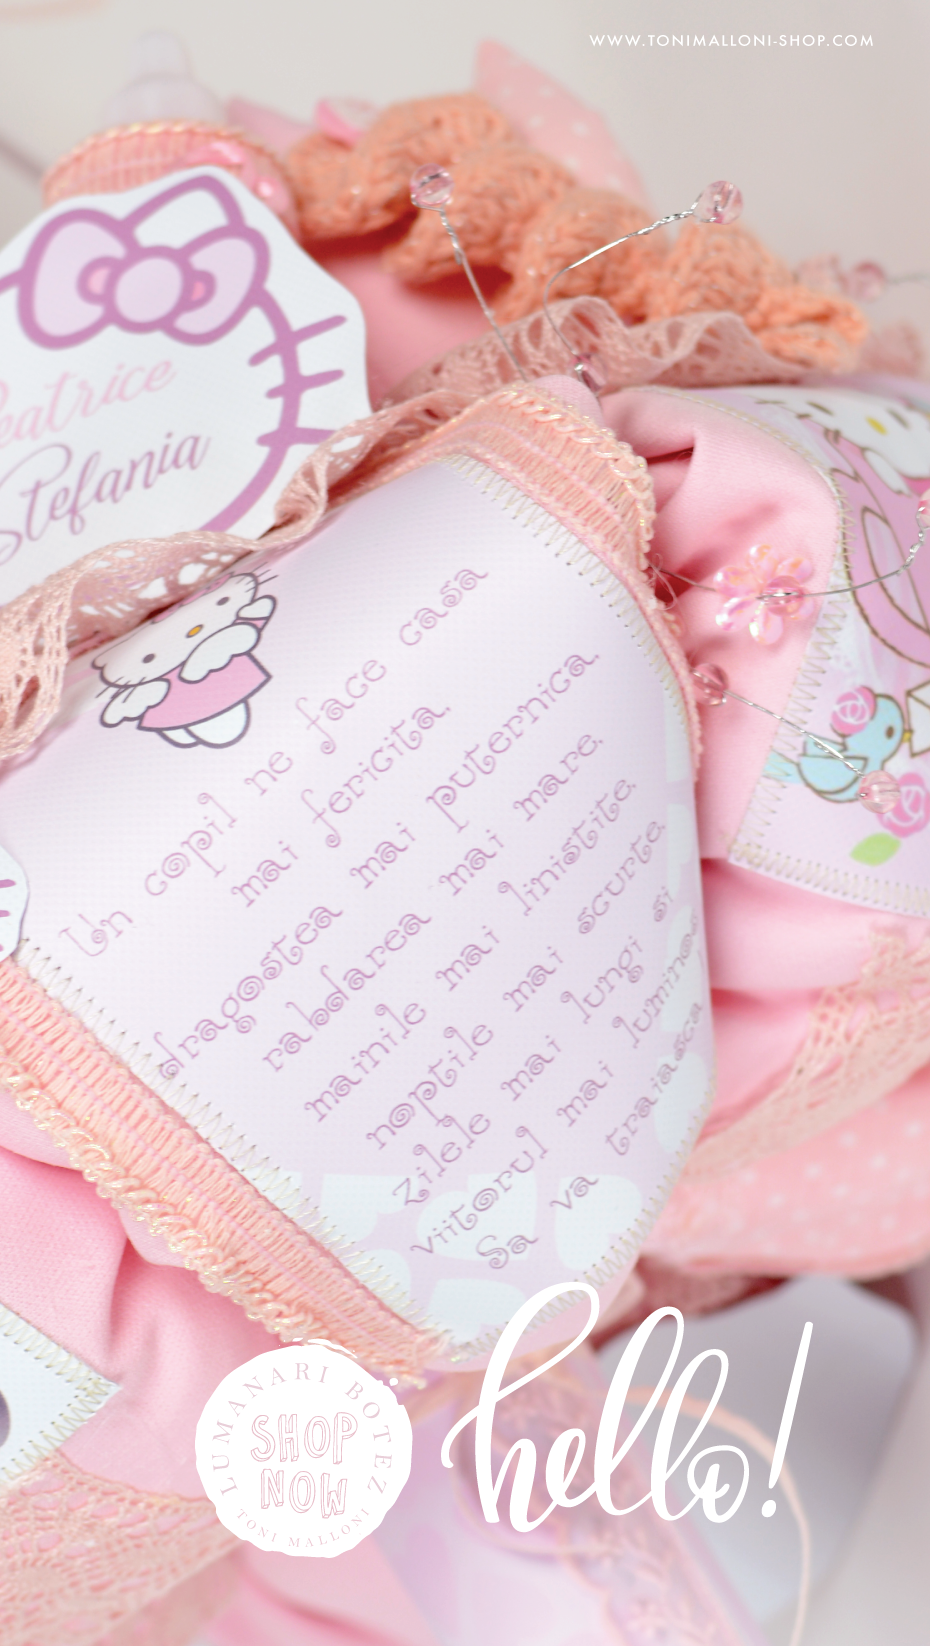 WWW.TONIMALLONI-SHOP.COM
Beatrice
Stefania
Un copil ne face casa
mai fericita,
dragostea mai puternica,
rabdarea mai mare,
mainile mai linistite,
noptile mai scurte,
zilele mai lungi si
viitorul mai luminos
Sa va traiasca
LUMANARI BOTEZ
SHOP
NOW
TONI MALLONI
hello!